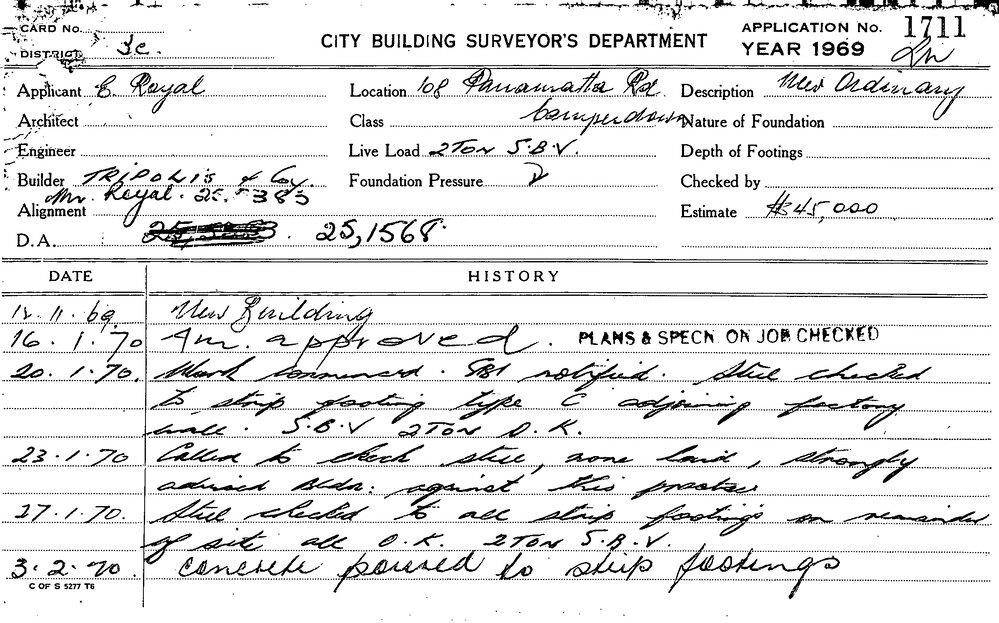 CARD No. APPLICATION No. 1711
DISTRICT 3c. CITY BUILDING SURVEYOR'S DEPARTMENT YEAR 1969
Applicant E. Royal Location 108 Parramatta Rd. Description New Ordinary
Architect Class Camperdown Nature of Foundation
Engineer Live Load 2 TON S.B.V. Depth of Footings
Builder TRIPOLIS & Coy. Foundation Pressure Checked by
Mr. Royal. 25.5383
Alignment Estimate $45,000
D.A. 25,1568
DATE HISTORY
12.11.69 New Building
16.1.70 Am. approved. PLANS & SPECN. ON JOB CHECKED
20.1.70. Work commenced. SBI notified. Steel checked
to strip footing type C adjoining factory
wall. S.B.V 2 TON O.K.
23.1.70 Called to check steel, none laid, strongly
advised Bldr. against this practise
27.1.70. Steel checked to all strip footings on remainder
of site all O.K. 2 TON S.B.V.
3.2.70. Concrete poured to strip footings
C OF S 5277 T6